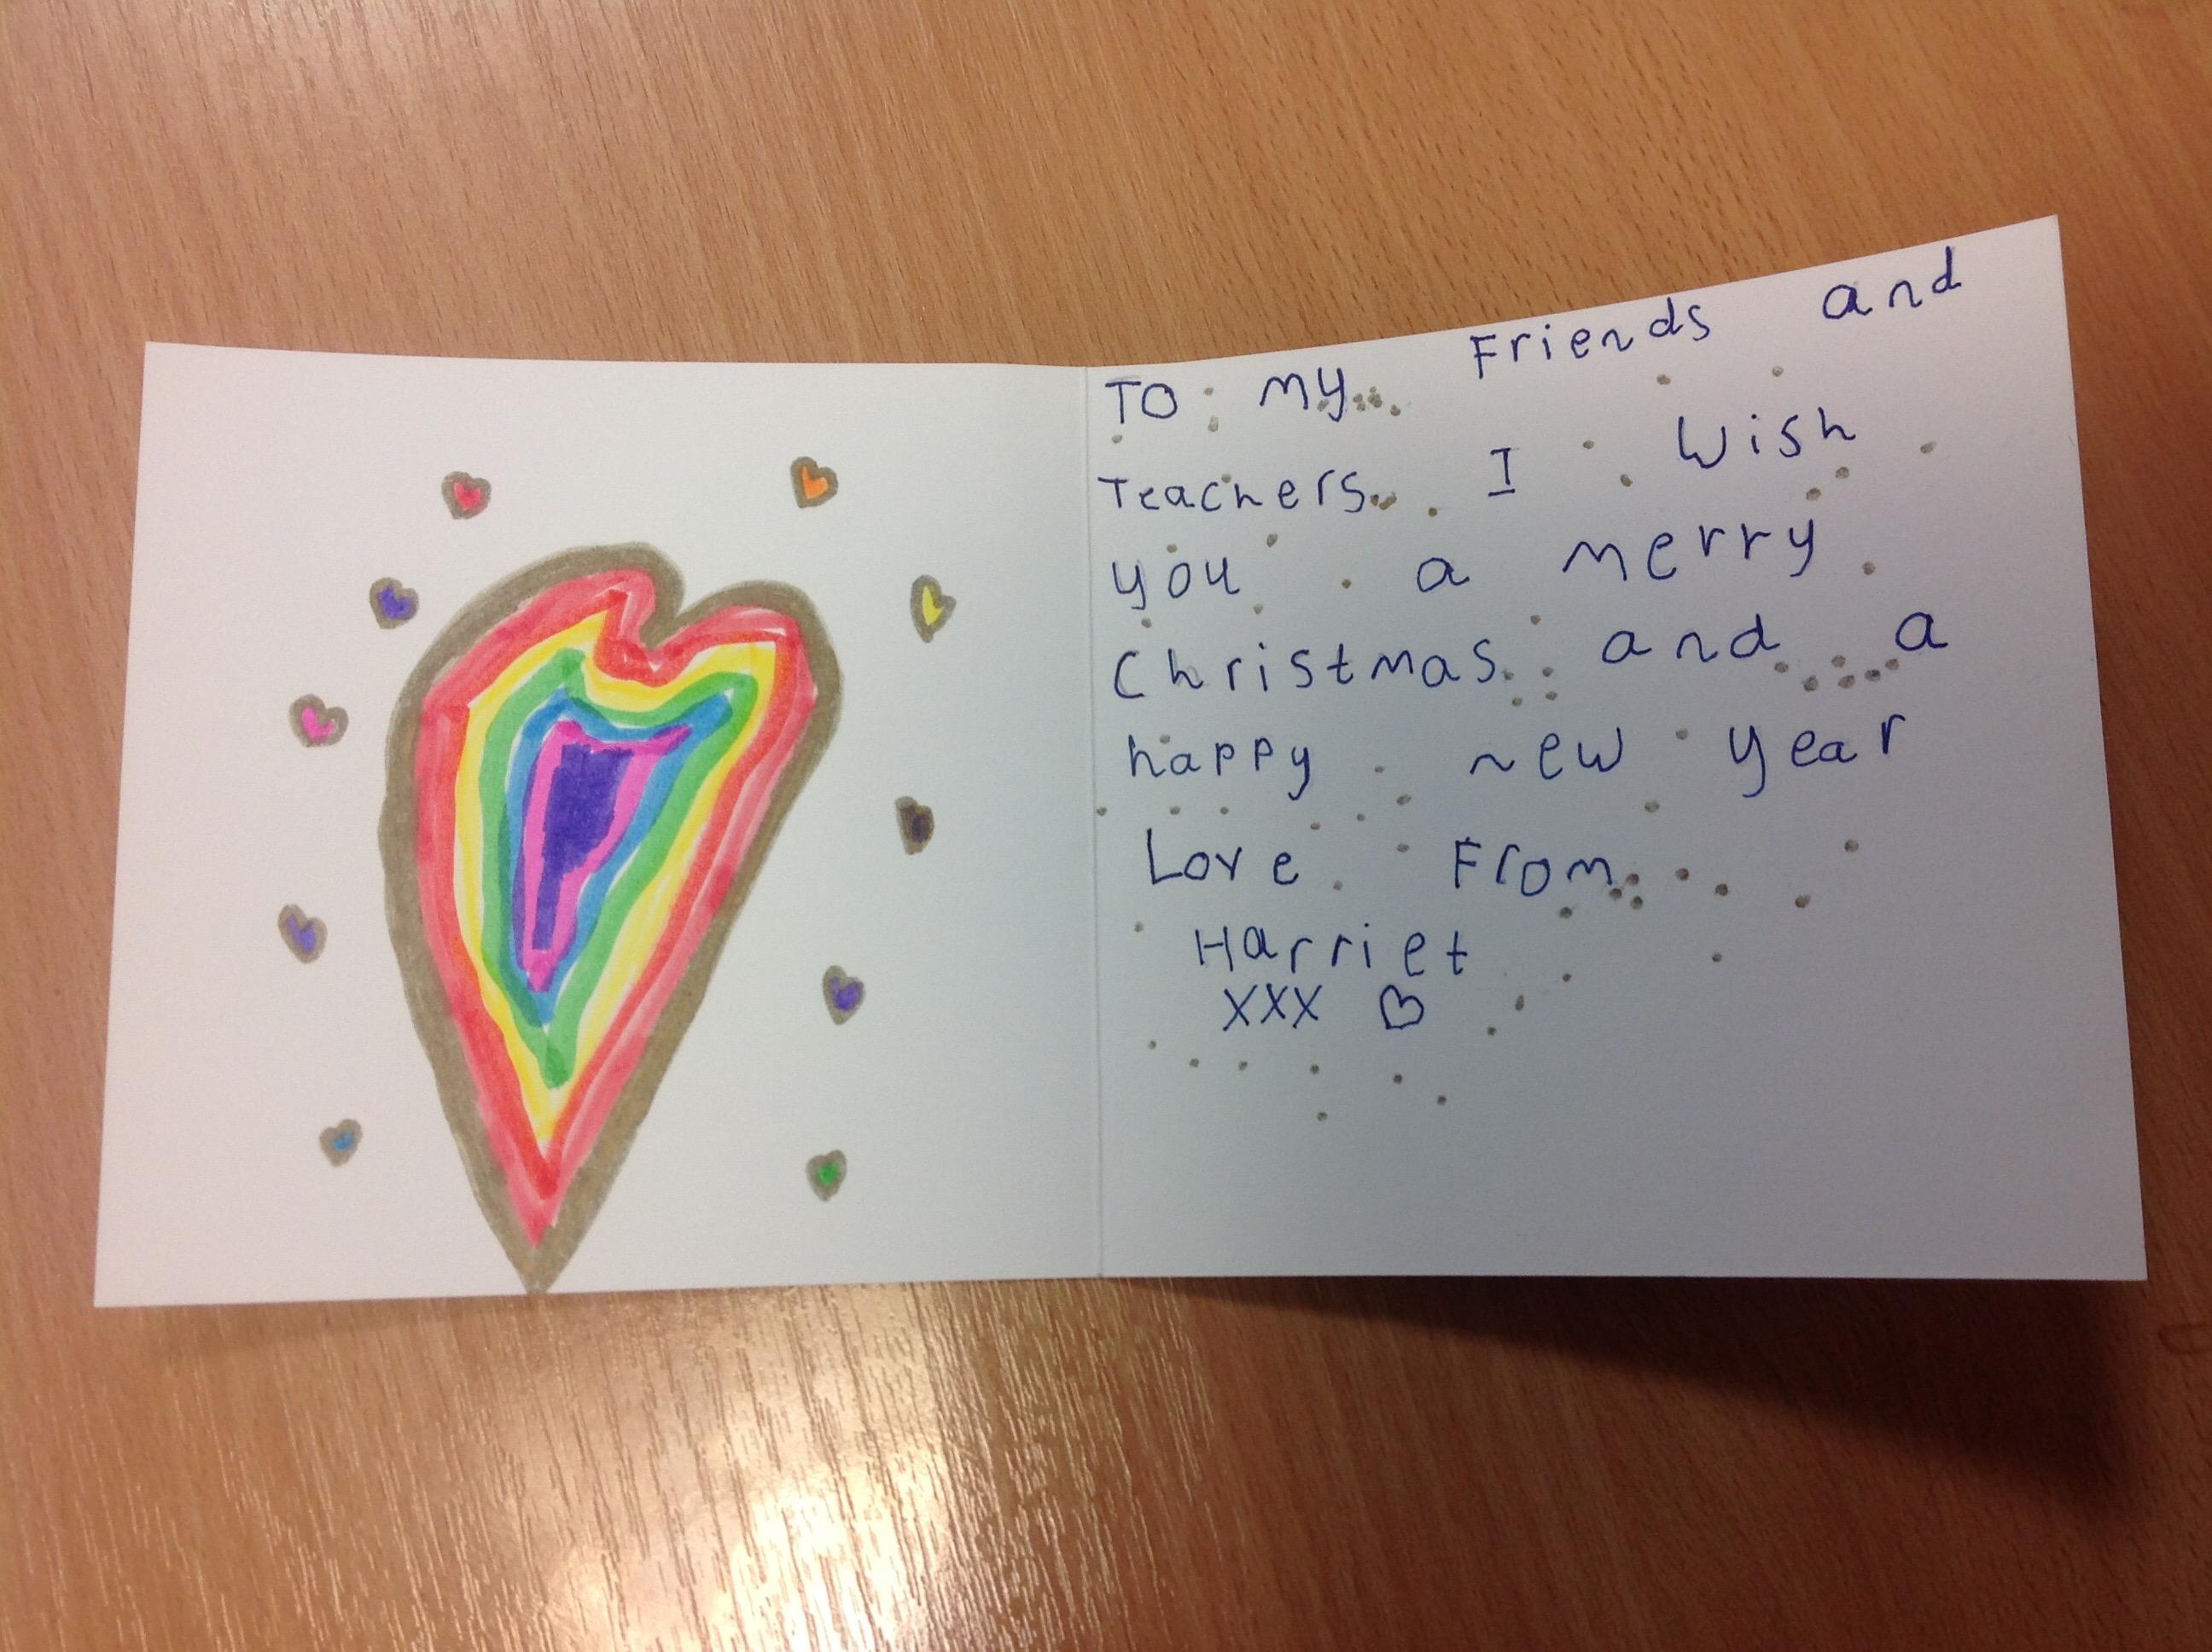 To my Friends and
Teachers I wish
you a merry
Christmas and a
happy new year
Love From
Harriet
XXX ♡